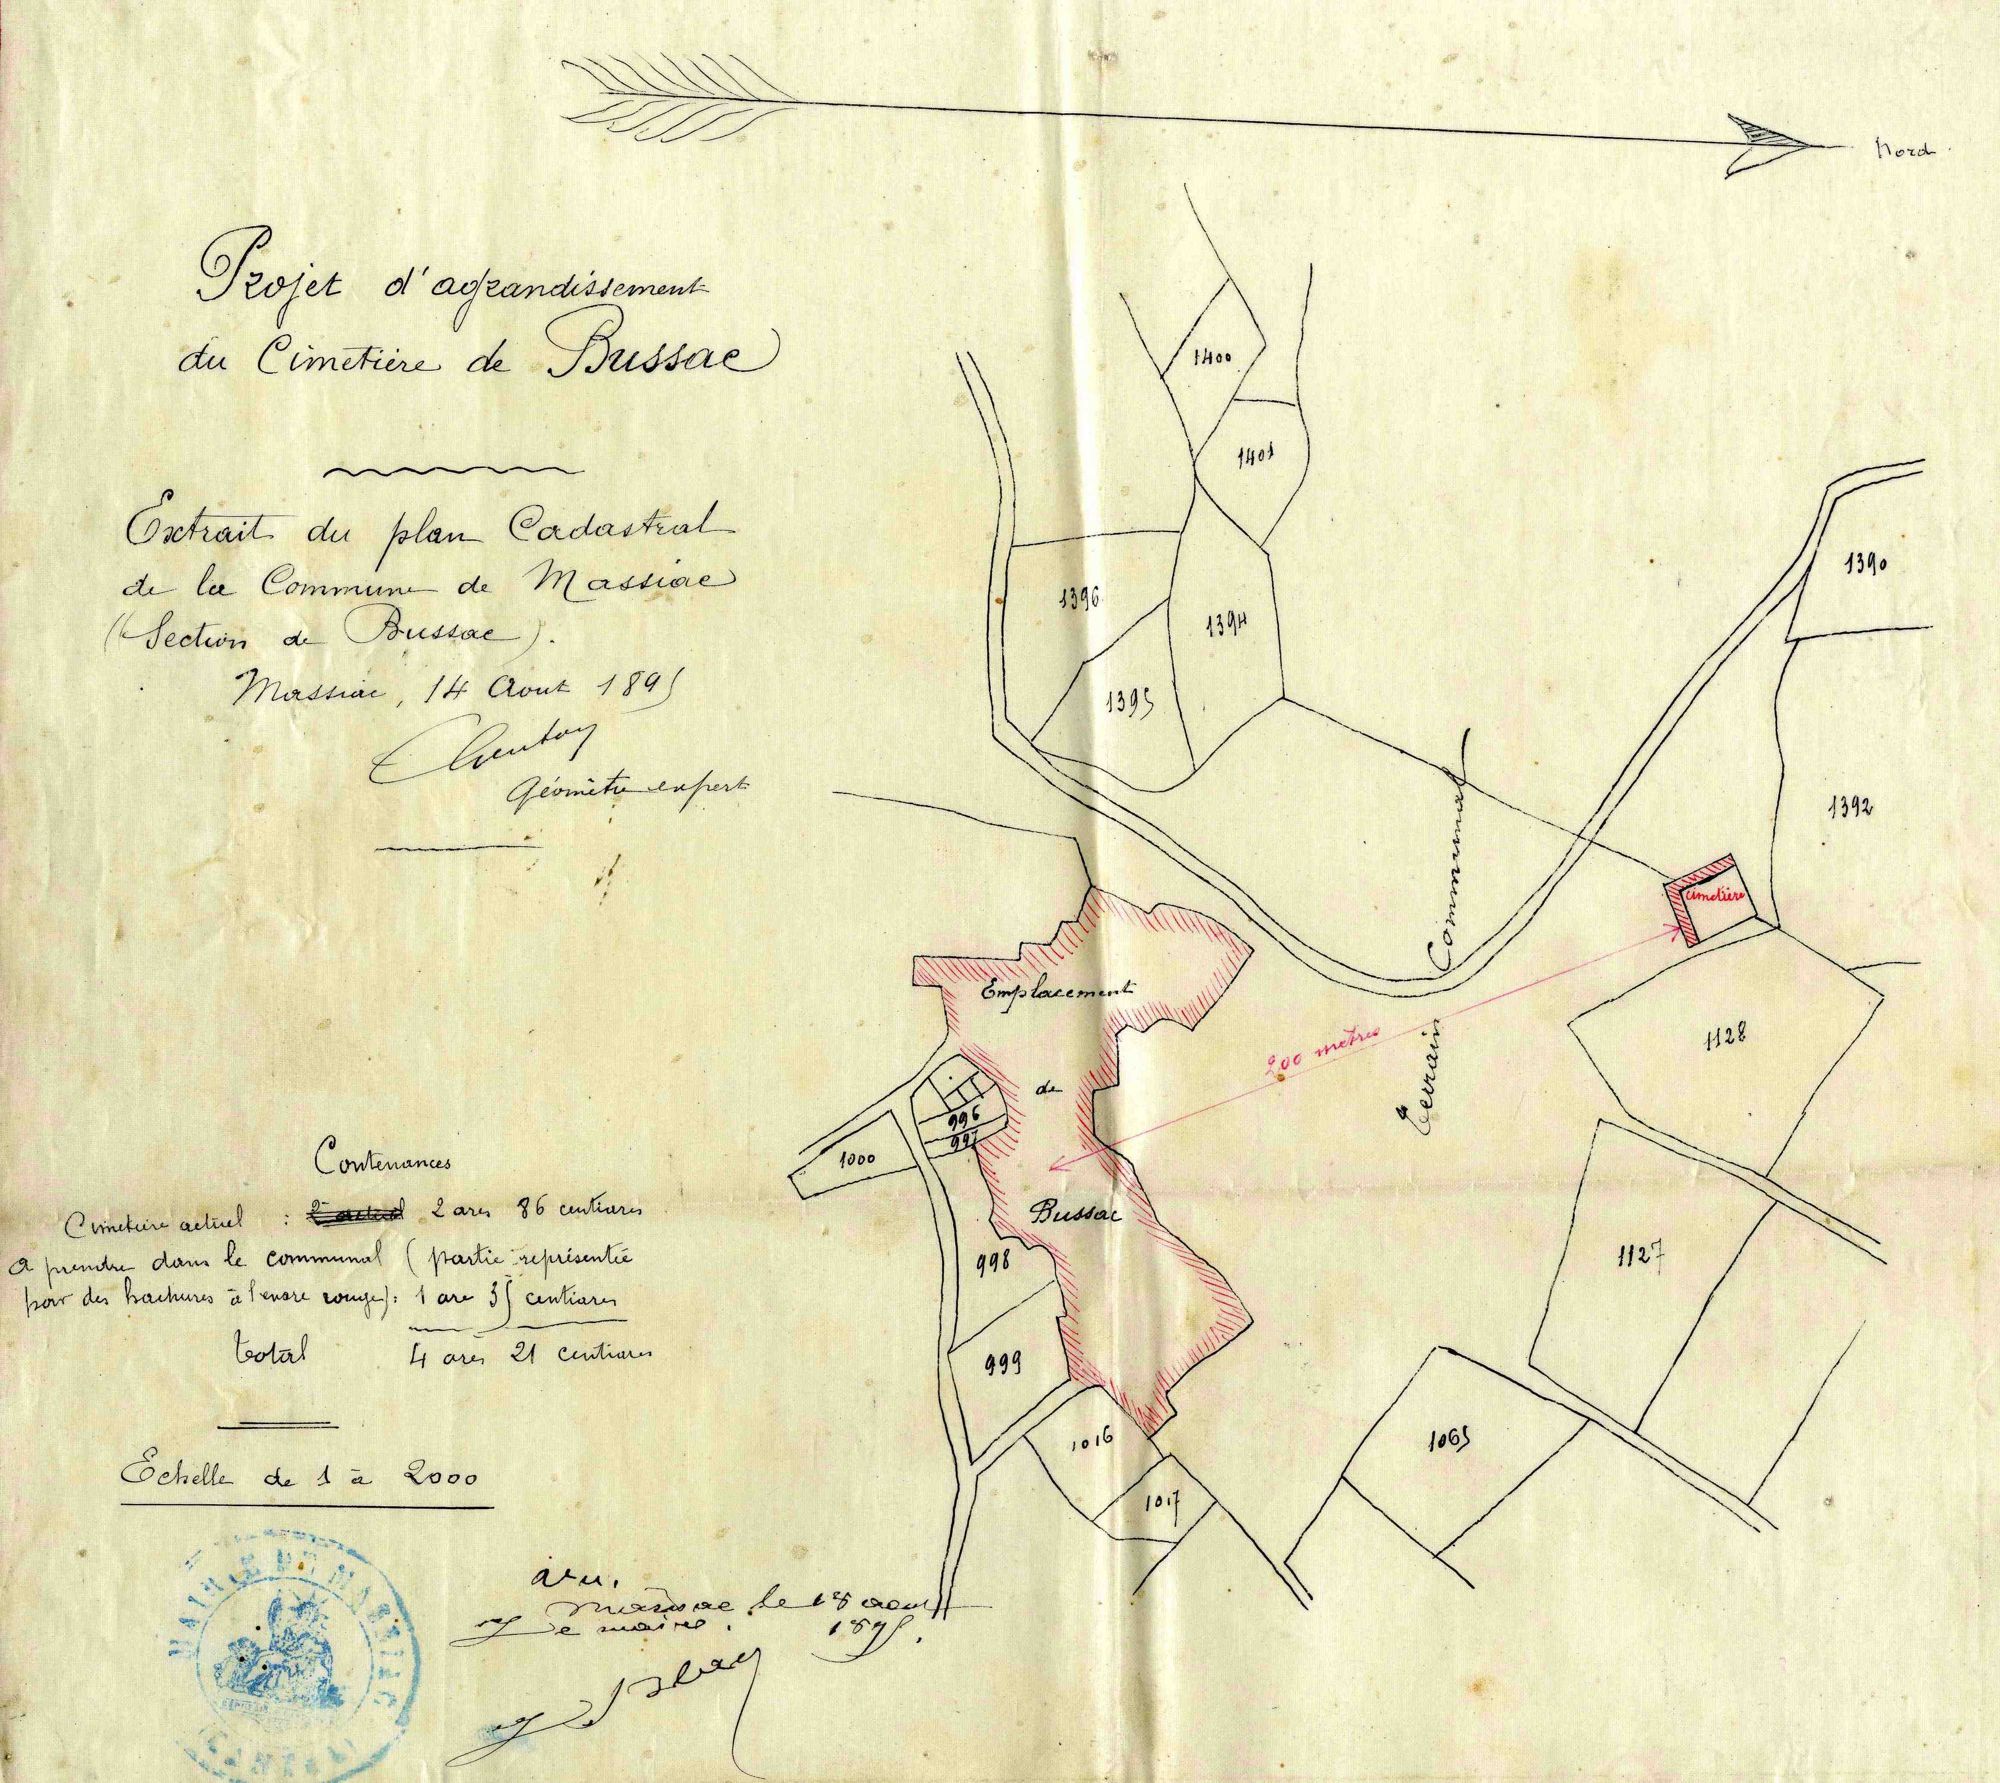 Nord
Projet d'agrandissement
du Cimetière de Bussac
Extrait du plan Cadastral
de la Commune de Massiac
(Section de Bussac).
Massiac, 14 Aout 1895
Géomètre expert
Contenances
Cimetière actuel : 2 ares 86 centiares
a prendre dans le communal (partie représentée
par des hachures à l'encre rouge): 1 are 35 centiares
total 4 ares 21 centiares
Echelle de 1 à 2000
MAIRIE DE MASSIAC
(CANTAL)
Vu.
Massiac le 18 aout
1895.
Le maire.
1400
1401
1396
1394
1395
1390
1392
Terrain Communal
cimetière
200 mètres
Emplacement
de
Bussac
996
997
1000
998
999
1016
1017
1128
1127
1065